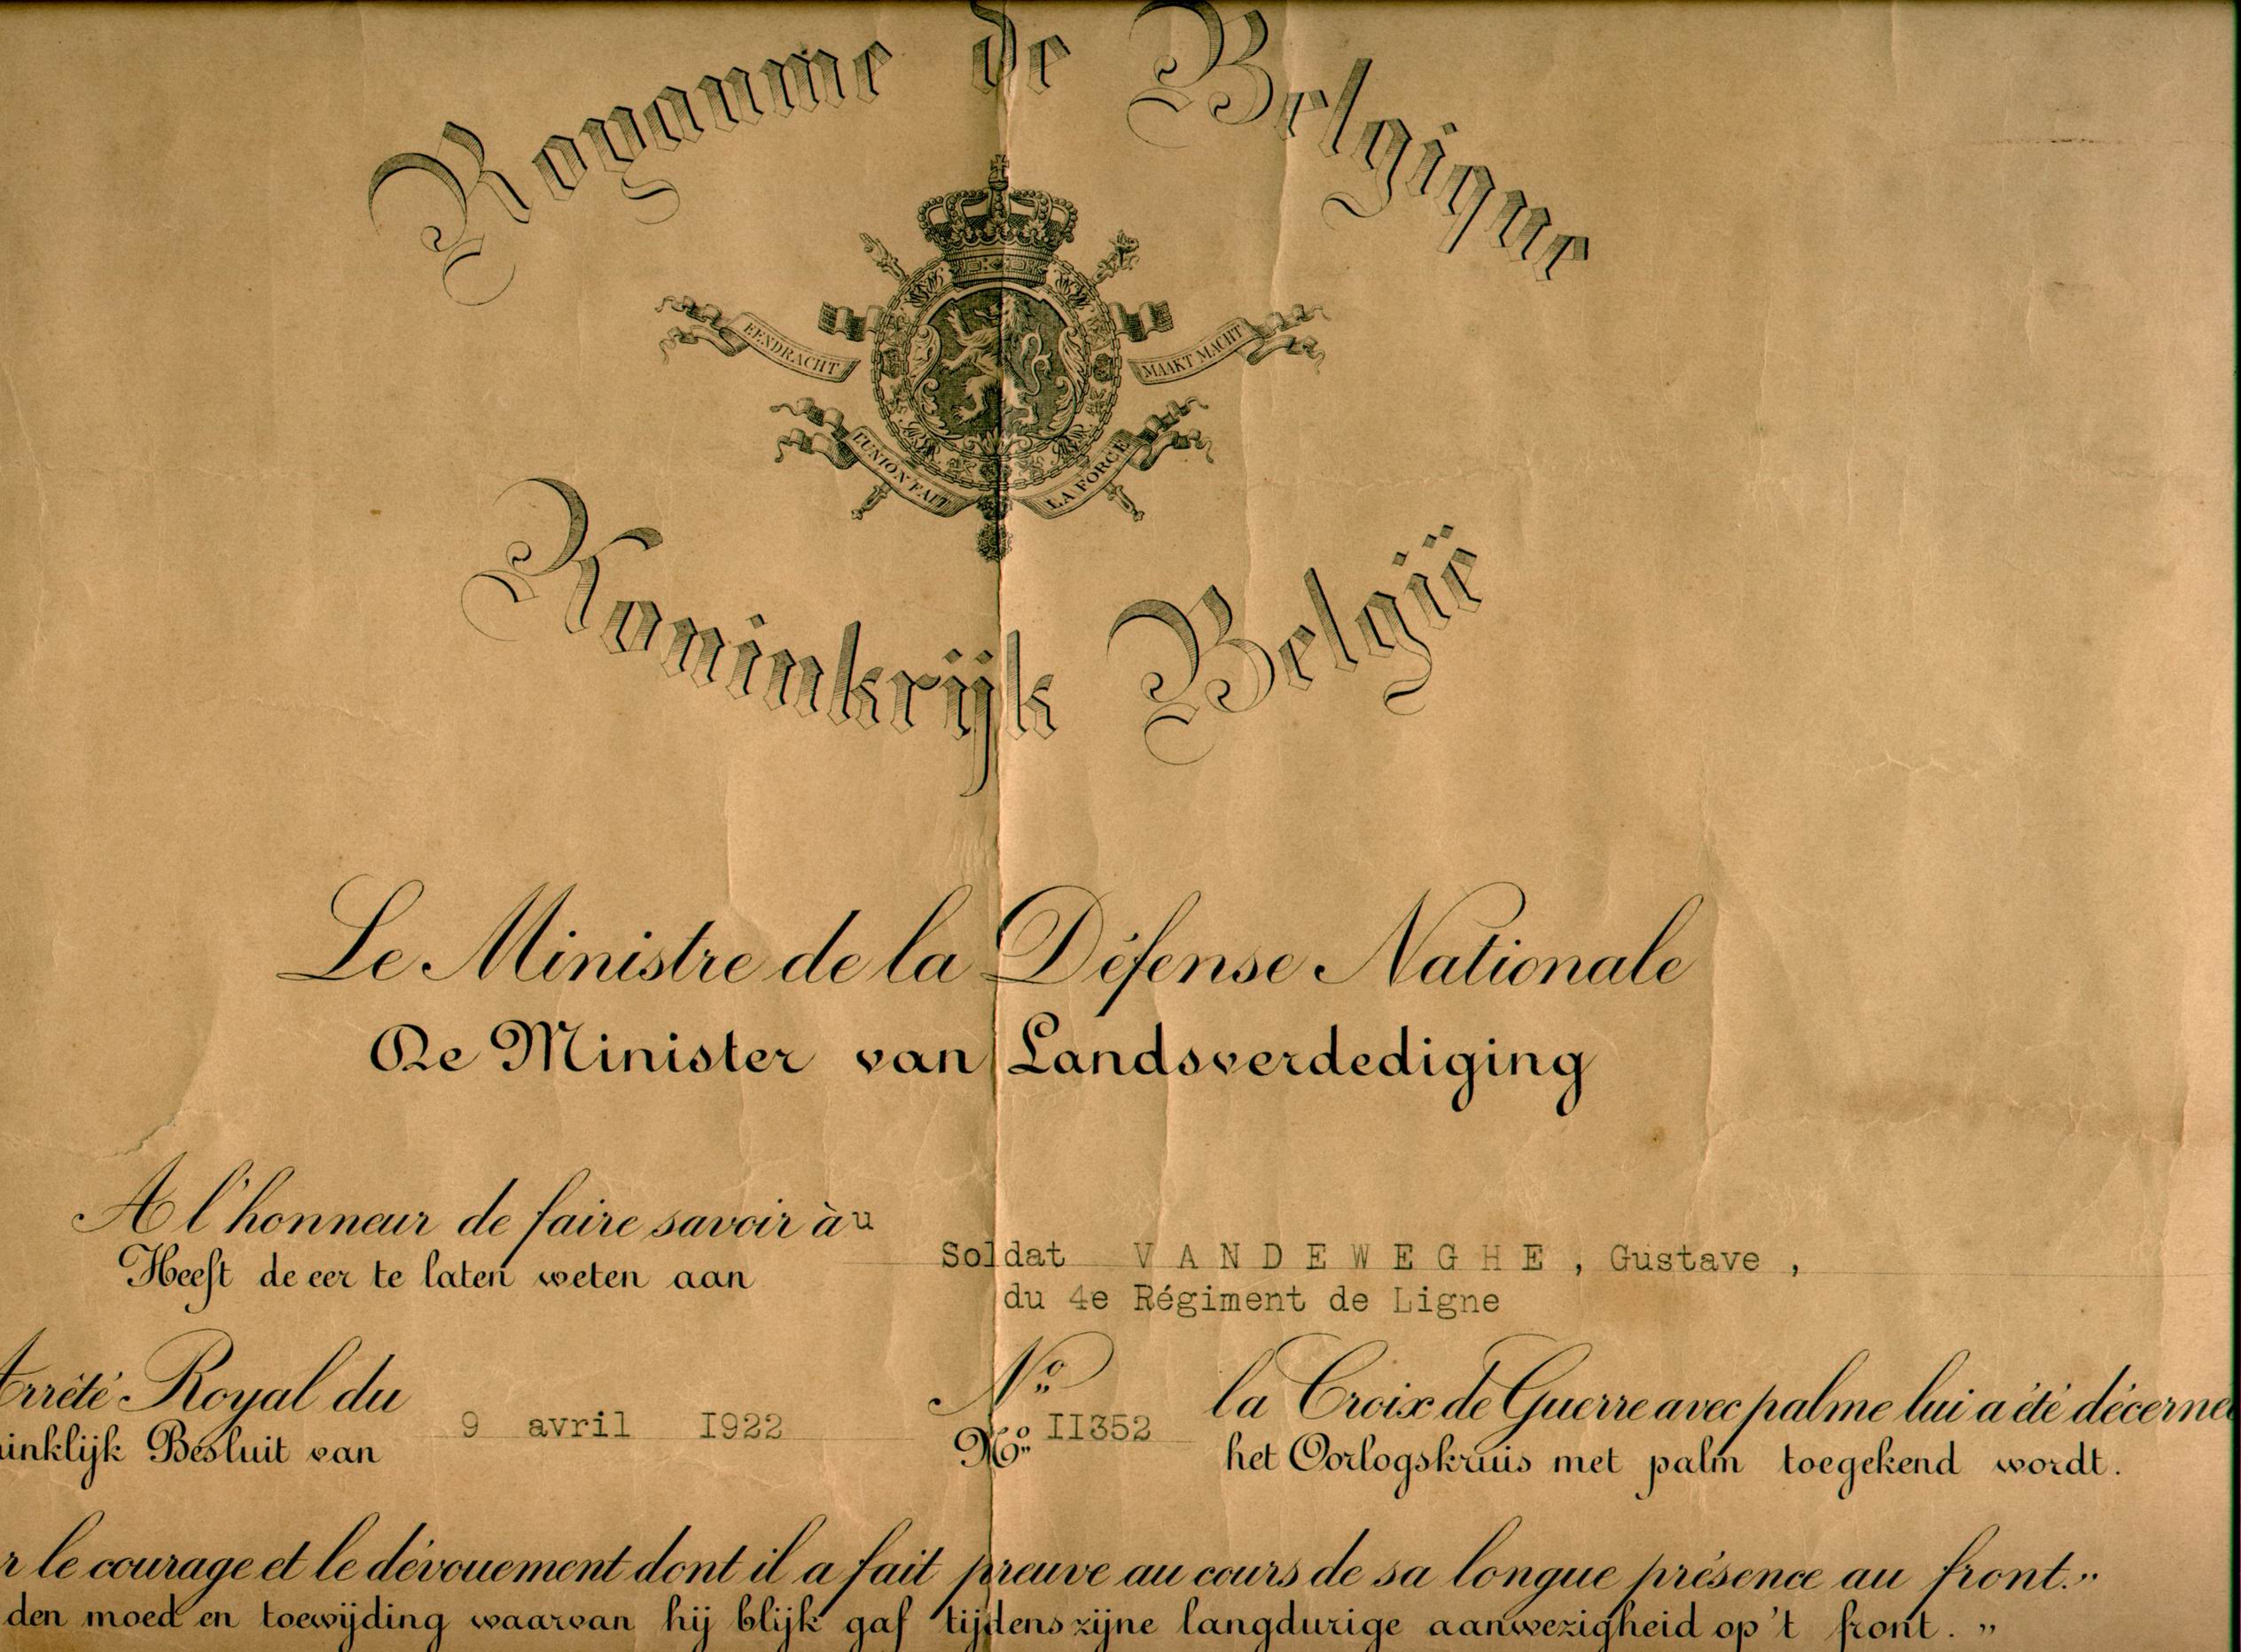 Royaume de Belgique
EENDRACHT MAAKT MACHT
L'UNION FAIT LA FORCE
Koninkrijk België
Le Ministre de la Défense Nationale
De Minister van Landsverdediging
A l'honneur de faire savoir àu
Heeft de eer te laten weten aan
Soldat V A N D E W E G H E , Gustave ,
du 4e Régiment de Ligne
Arrêté Royal du 9 avril I922 No II352 la Croix de Guerre avec palme lui a été décerne
inklijk Besluit van No het Oorlogskruis met palm toegekend wordt.
r le courage et le dévouement dont il a fait preuve au cours de sa longue présence au front."
den moed en toewijding waarvan hij blijk gaf tijdens zijne langdurige aanwezigheid op 't front. "